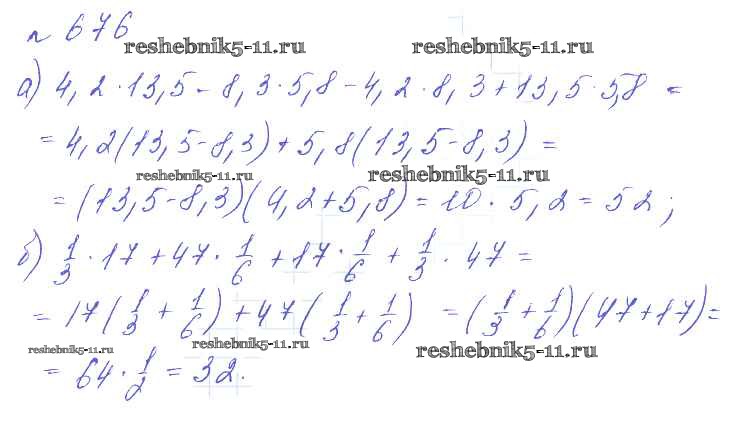 № 676
reshebnik5-11.ru reshebnik5-11.ru
а) 4,2·13,5 - 8,3·5,8 - 4,2·8,3 + 13,5·5,8 =
= 4,2(13,5-8,3) + 5,8(13,5-8,3) =
reshebnik5-11.ru reshebnik5-11.ru
= (13,5-8,3)(4,2+5,8) = 10·5,2 = 52;
б) 1/3·17 + 47·1/6 + 17·1/6 + 1/3·47 =
= 17(1/3 + 1/6) + 47(1/3 + 1/6) = (1/3 + 1/6)(47+17) =
reshebnik5-11.ru reshebnik5-11.ru reshebnik5-11.ru
= 64·1/2 = 32.